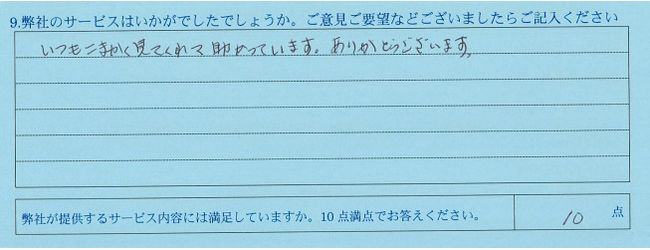 9.弊社のサービスはいかがでしたでしょうか。ご意見ご要望などございましたらご記入ください
いつもこまかく見てくれて助かっています。ありがとうございます。
弊社が提供するサービス内容には満足していますか。10点満点でお答えください。 10 点